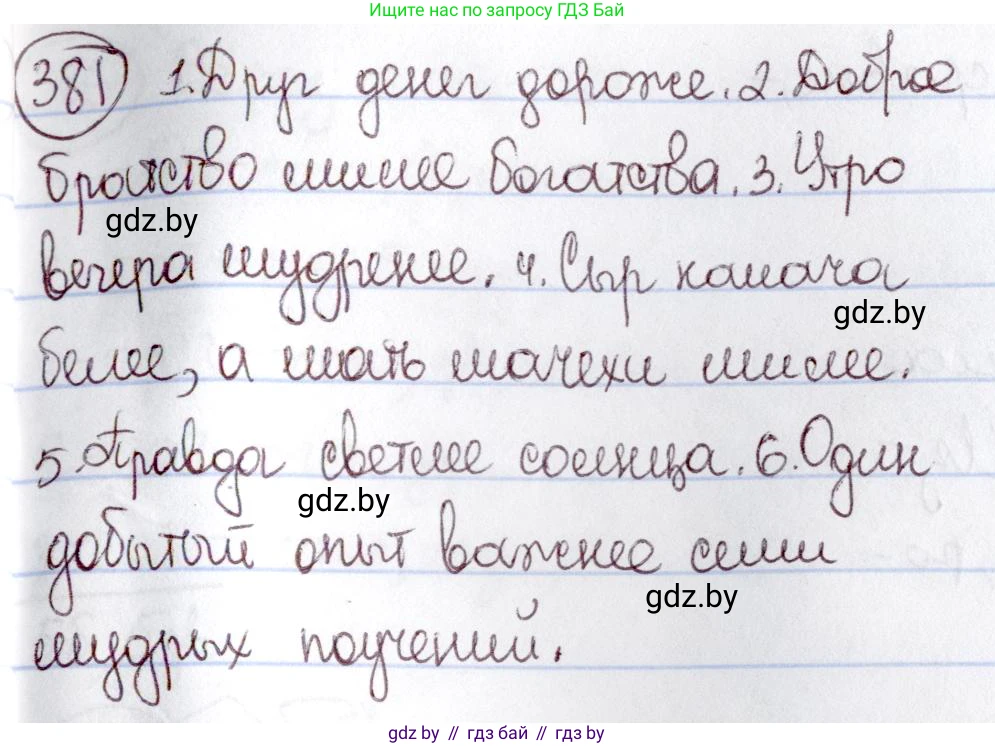 Ищите нас по запросу ГДЗ Бай
381 1. Друг денег дороже. 2. Доброе
братство милее богатства. 3. Утро
gdz.by
вечера мудренее. 4. Сыр калача
gdz.by
белее, а мать мачехи милее.
5. Правда светлее солнца. 6. Один
gdz.by
добытый опыт важнее семи
gdz.by
мудрых поучений.
gdz.by // гдз бай // гдз by